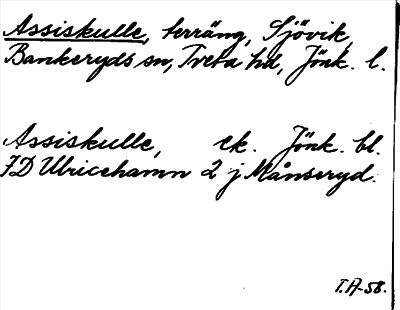 Assiskulle, terräng, Sjövik,
Bankeryds sn, Tveta hd, Jönk. l.
Assiskulle, ek. Jönk. bl.
7D Ulricehamn 2 j Månseryd.
T.A-58.